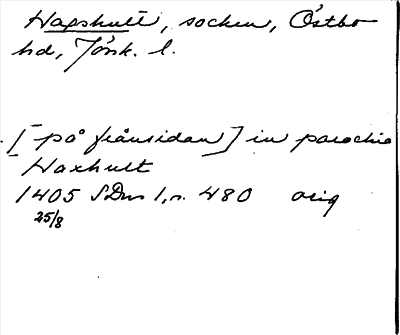 Hagshult, socken, Östbo
hd, Jönk. l.
[på frånsidan] in parochia
Haxhult
1405 SDns 1, n. 480 orig
25/8